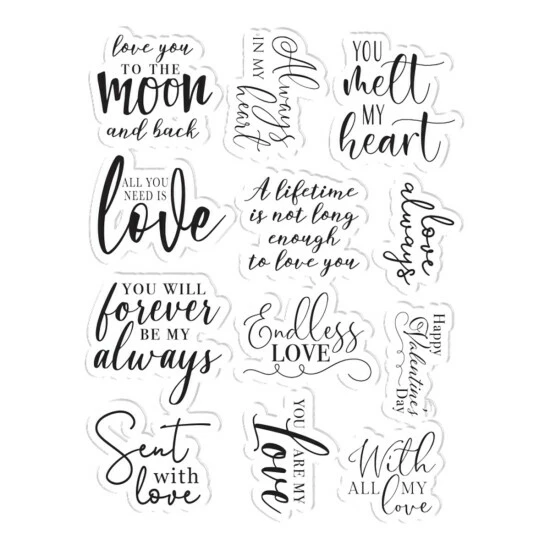 love you
TO THE
moon
and back
Always
IN MY
heart
YOU
melt
MY
heart
ALL YOU
NEED IS
love
A lifetime
is not long
enough
to love you
love
always
YOU WILL
forever
BE MY
always
Endless
LOVE
Happy
Valentine's
Day
Sent
with
love
YOU ARE MY
Love
With
ALL MY
love